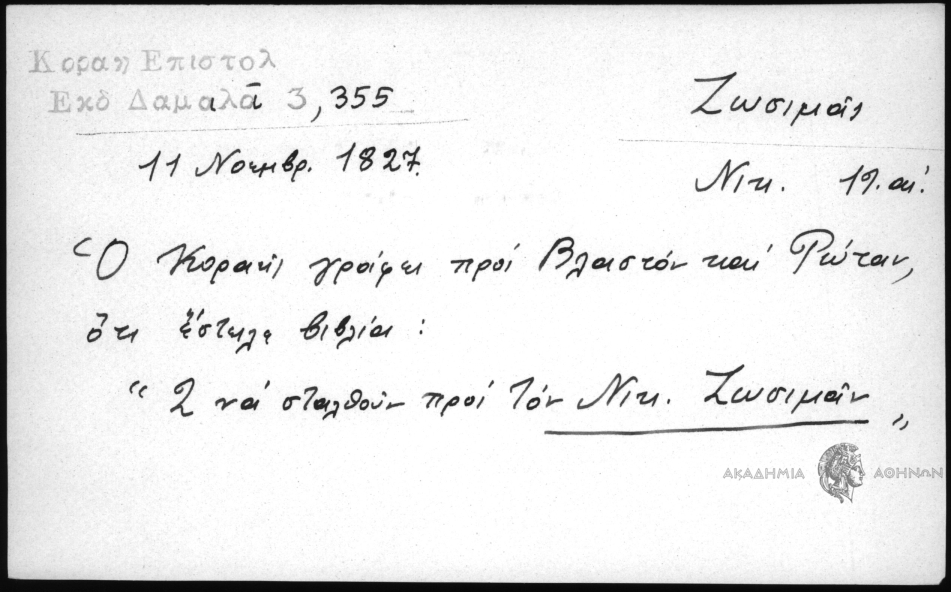 Κοραη Επιστολ
Εκδ Δαμαλᾶ 3,355
Ζωσιμᾶς
11 Νοεμβρ. 1827.
Νικ. 19. αἰ.
Ὁ Κοραῆς γράφει πρὸς Βλαστόν καί Ρώταν,
ὅτι ἔστειλε βιβλία :
" 2 νά σταλθοῦν πρός τόν Νικ. Ζωσιμᾶν "
ΑΚΑΔΗΜΙΑ ΑΘΗΝΩΝ